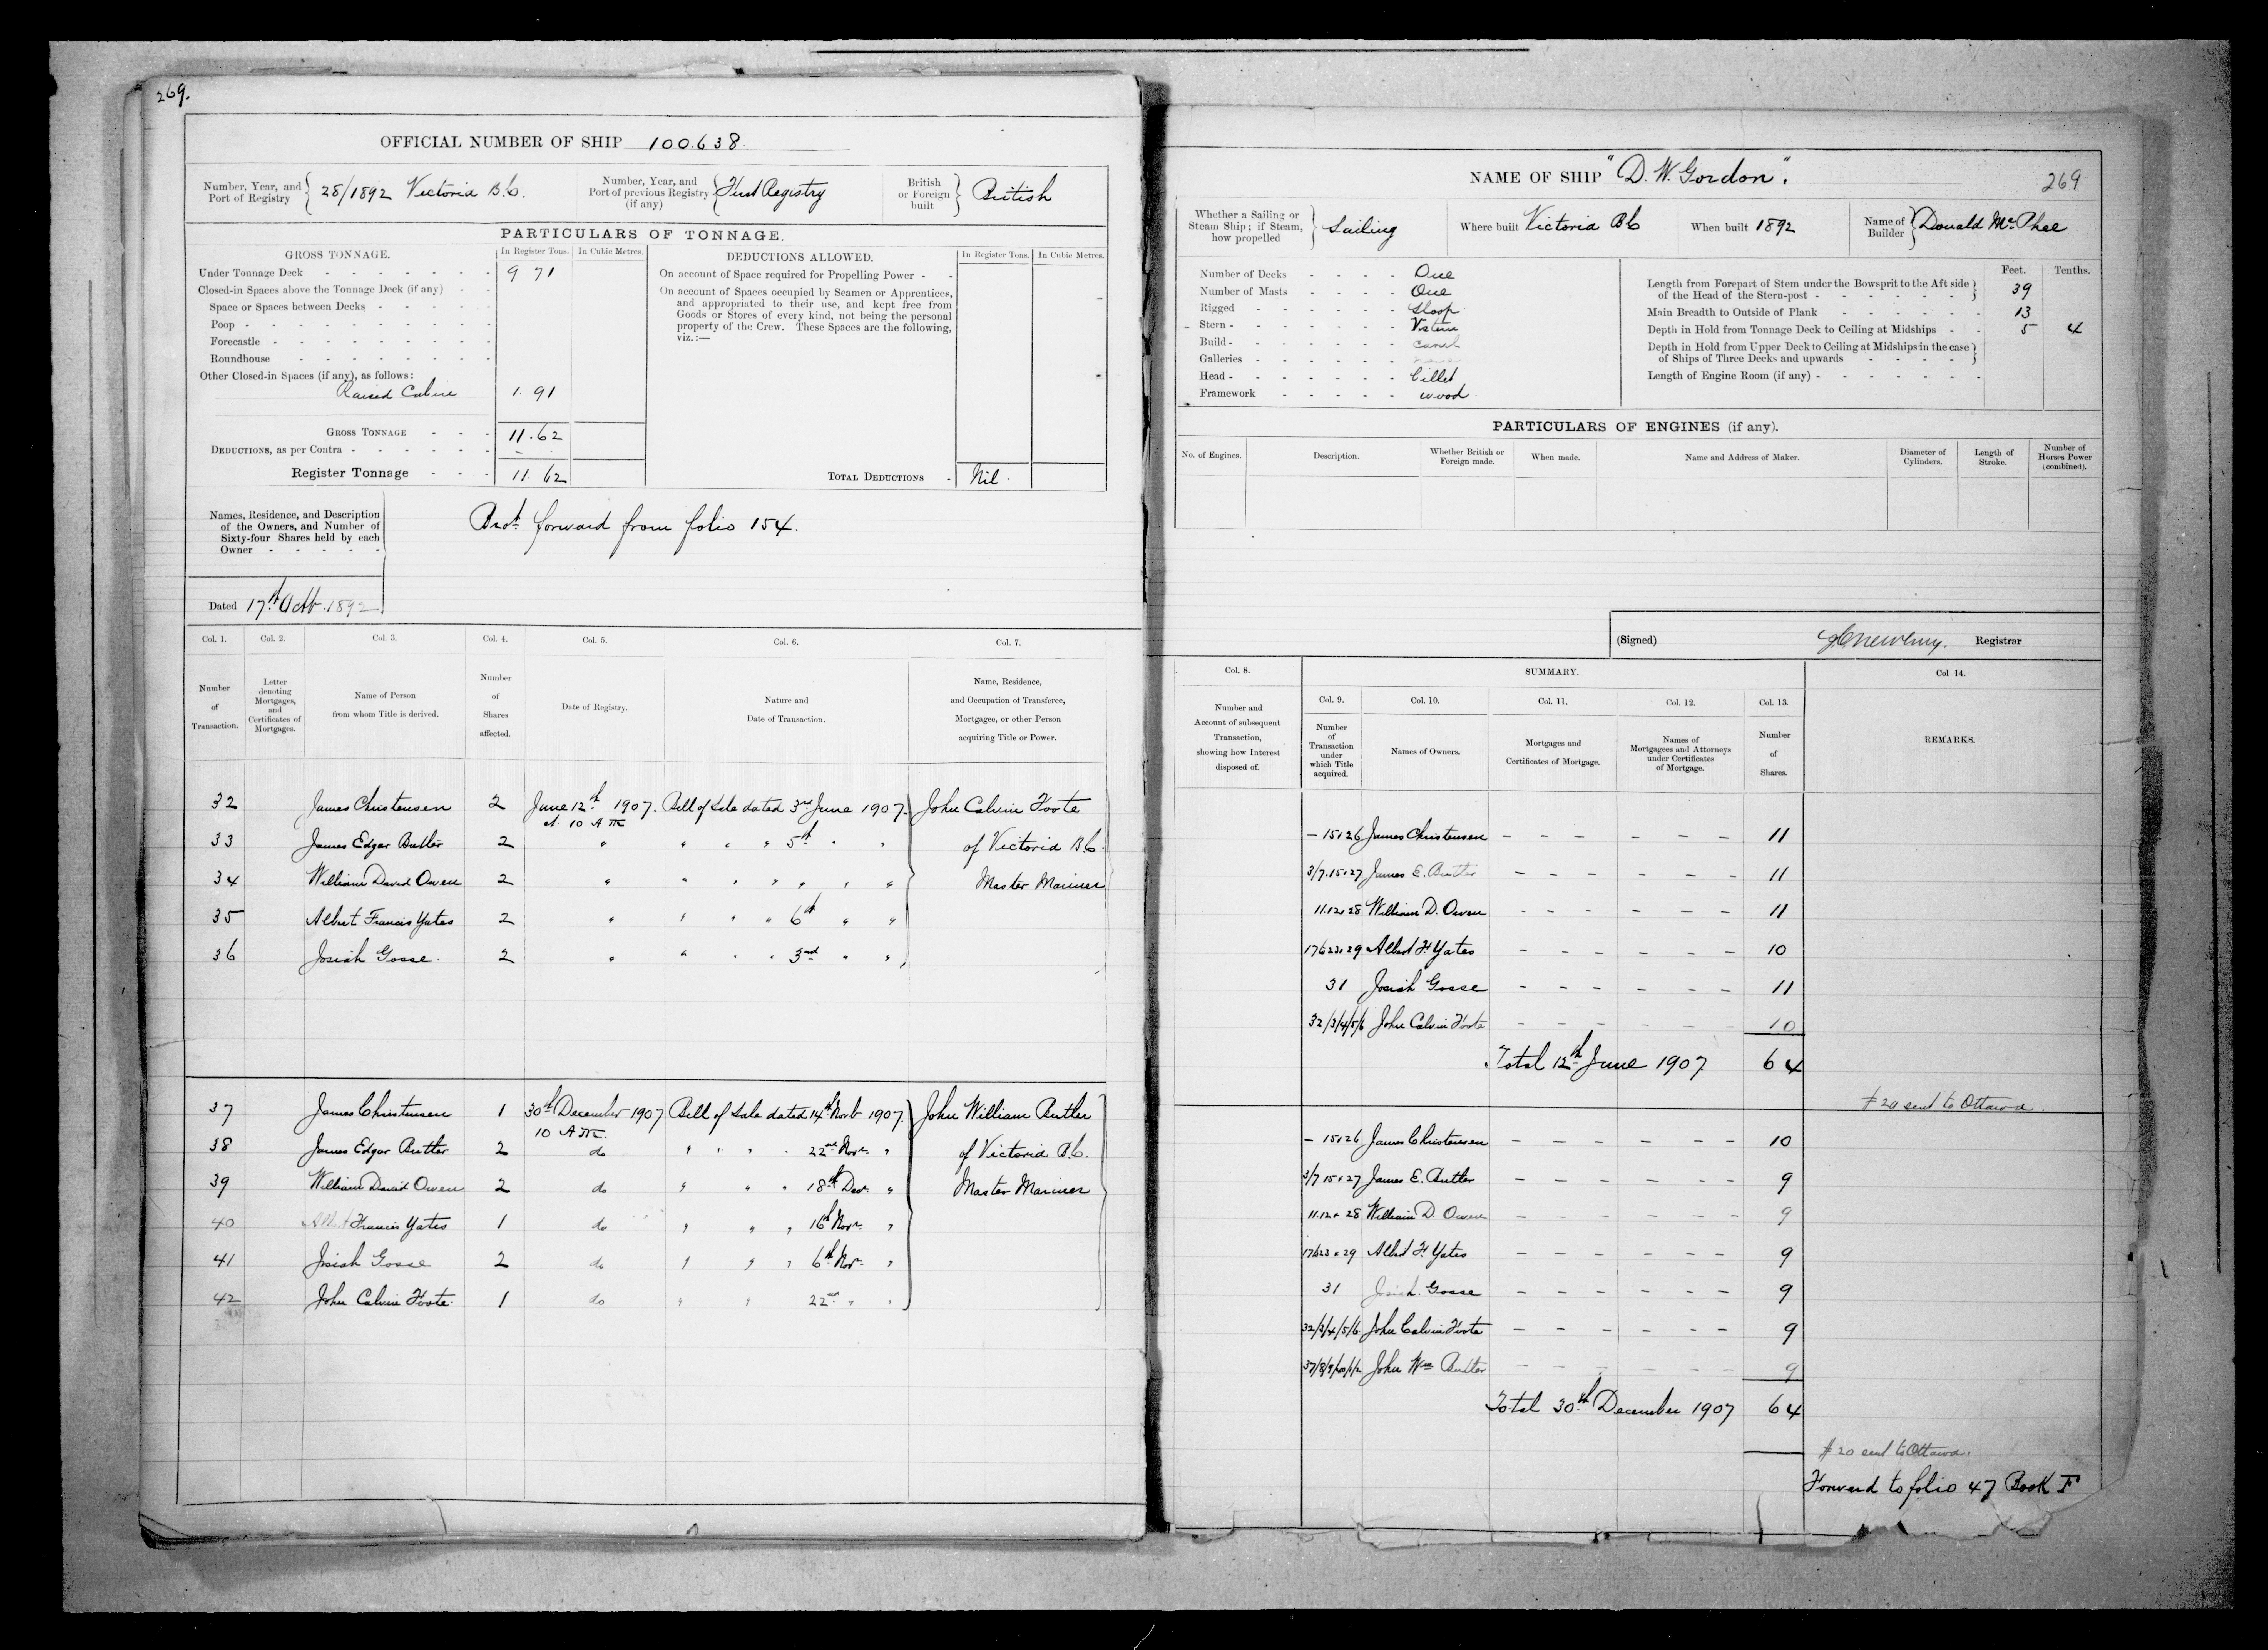 269.
OFFICIAL NUMBER OF SHIP 100.638.
Number, Year, and Port of Registry { 28/1892 Victoria B.C.
Number, Year, and Port of previous Registry (if any) { First Registry
British or Foreign built } British
PARTICULARS OF TONNAGE.
GROSS TONNAGE.
In Register Tons. In Cubic Metres.
Under Tonnage Deck 9 71
Closed-in Spaces above the Tonnage Deck (if any)
Space or Spaces between Decks
Poop
Forecastle
Roundhouse
Other Closed-in Spaces (if any), as follows:
Raised Cabin 1.91
GROSS TONNAGE 11.62
DEDUCTIONS, as per Contra -
Register Tonnage 11.62
DEDUCTIONS ALLOWED.
In Register Tons. In Cubic Metres.
On account of Space required for Propelling Power
On account of Spaces occupied by Seamen or Apprentices,
and appropriated to their use, and kept free from
Goods or Stores of every kind, not being the personal
property of the Crew. These Spaces are the following,
viz.:—
TOTAL DEDUCTIONS Nil.
Names, Residence, and Description
of the Owners, and Number of
Sixty-four Shares held by each
Owner
Brot. forward from folio 154.
Dated 17th Octb. 1892
Col. 1. Col. 2. Col. 3. Col. 4. Col. 5. Col. 6. Col. 7.
Number of Transaction.
Letter denoting Mortgages, and Certificates of Mortgages.
Name of Person from whom Title is derived.
Number of Shares affected.
Date of Registry.
Nature and Date of Transaction.
Name, Residence, and Occupation of Transferee, Mortgagee, or other Person acquiring Title or Power.
32 James Christensen 2 June 12th 1907. Bill of Sale dated 3rd June 1907. John Calvin Foote
at 10 AM
33 James Edgar Butler 2 " " " " 5th " " of Victoria B.C.
34 William David Owen 2 " " " " " " " Master Mariner
35 Albert Francis Yates 2 " " " " 6th " "
36 Josiah Gosse. 2 " " " " 3rd " "
37 James Christensen 1 30th December 1907 Bill of Sale dated 14th Novb 1907. John William Butler
10 AM.
38 James Edgar Butler 2 do " " " 22nd Novr. " of Victoria B.C.
39 William David Owen 2 do " " " 18th Decr. " Master Mariner
40 Albert Francis Yates 1 do " " " 16th Novr. "
41 Josiah Gosse 2 do " " " 6th Novr. "
42 John Calvin Foote. 1 do " " 22nd " "
NAME OF SHIP "D. W. Gordon". 269
Whether a Sailing or Steam Ship; if Steam, how propelled } Sailing
Where built Victoria BC
When built 1892
Name of Builder } Donald McPhee
Number of Decks One
Number of Masts One
Rigged Sloop
Stern
Build Carvel
Galleries none
Head Billet
Framework wood
Feet. Tenths.
Length from Forepart of Stem under the Bowsprit to the Aft side
of the Head of the Stern-post 39
Main Breadth to Outside of Plank 13
Depth in Hold from Tonnage Deck to Ceiling at Midships 5 4
Depth in Hold from Upper Deck to Ceiling at Midships in the case
of Ships of Three Decks and upwards
Length of Engine Room (if any)
PARTICULARS OF ENGINES (if any).
No. of Engines. Description. Whether British or Foreign made. When made. Name and Address of Maker. Diameter of Cylinders. Length of Stroke. Number of Horses Power (combined).
(Signed) Registrar
Col. 8. SUMMARY. Col 14.
Col. 9. Col. 10. Col. 11. Col. 12. Col. 13.
Number and Account of subsequent Transaction, showing how Interest disposed of.
Number of Transaction under which Title acquired.
Names of Owners.
Mortgages and Certificates of Mortgage.
Names of Mortgagees and Attorneys under Certificates of Mortgage.
Number of Shares.
REMARKS.
– 15.26 James Christensen – – – – – – 11
3/7.15.27 James E. Butler – – – – – – 11
11.12.28 William D. Owen – – – – – – 11
Albert F. Yates – – – – – – 10
31 Josiah Gosse – – – – – – 11
32/3/4/5/6 John Calvin Foote – – – – – – 10
Total 12th June 1907 64
# 20 sent to Ottawa.
– 15.26 James Christensen – – – – – – 10
3/7 15.27 James E. Butler – – – – – – 9
11.12 + 28 William D. Owen – – – – – – 9
Albert F. Yates – – – – – – 9
31 Josiah Gosse – – – – – – 9
32/3/4/5/6 John Calvin Foote – – – – – – 9
37/8/9/40/1/2 John Wm Butler – – – – – – 9
Total 30th December 1907 64
# 20 sent to Ottawa.
Forward to folio 47 Book F